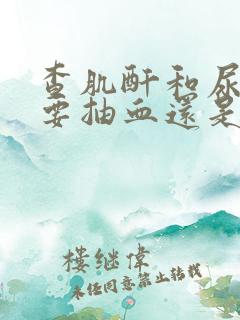 查肌酐和尿
要抽血還是
樓继偉
未经同意禁止转载